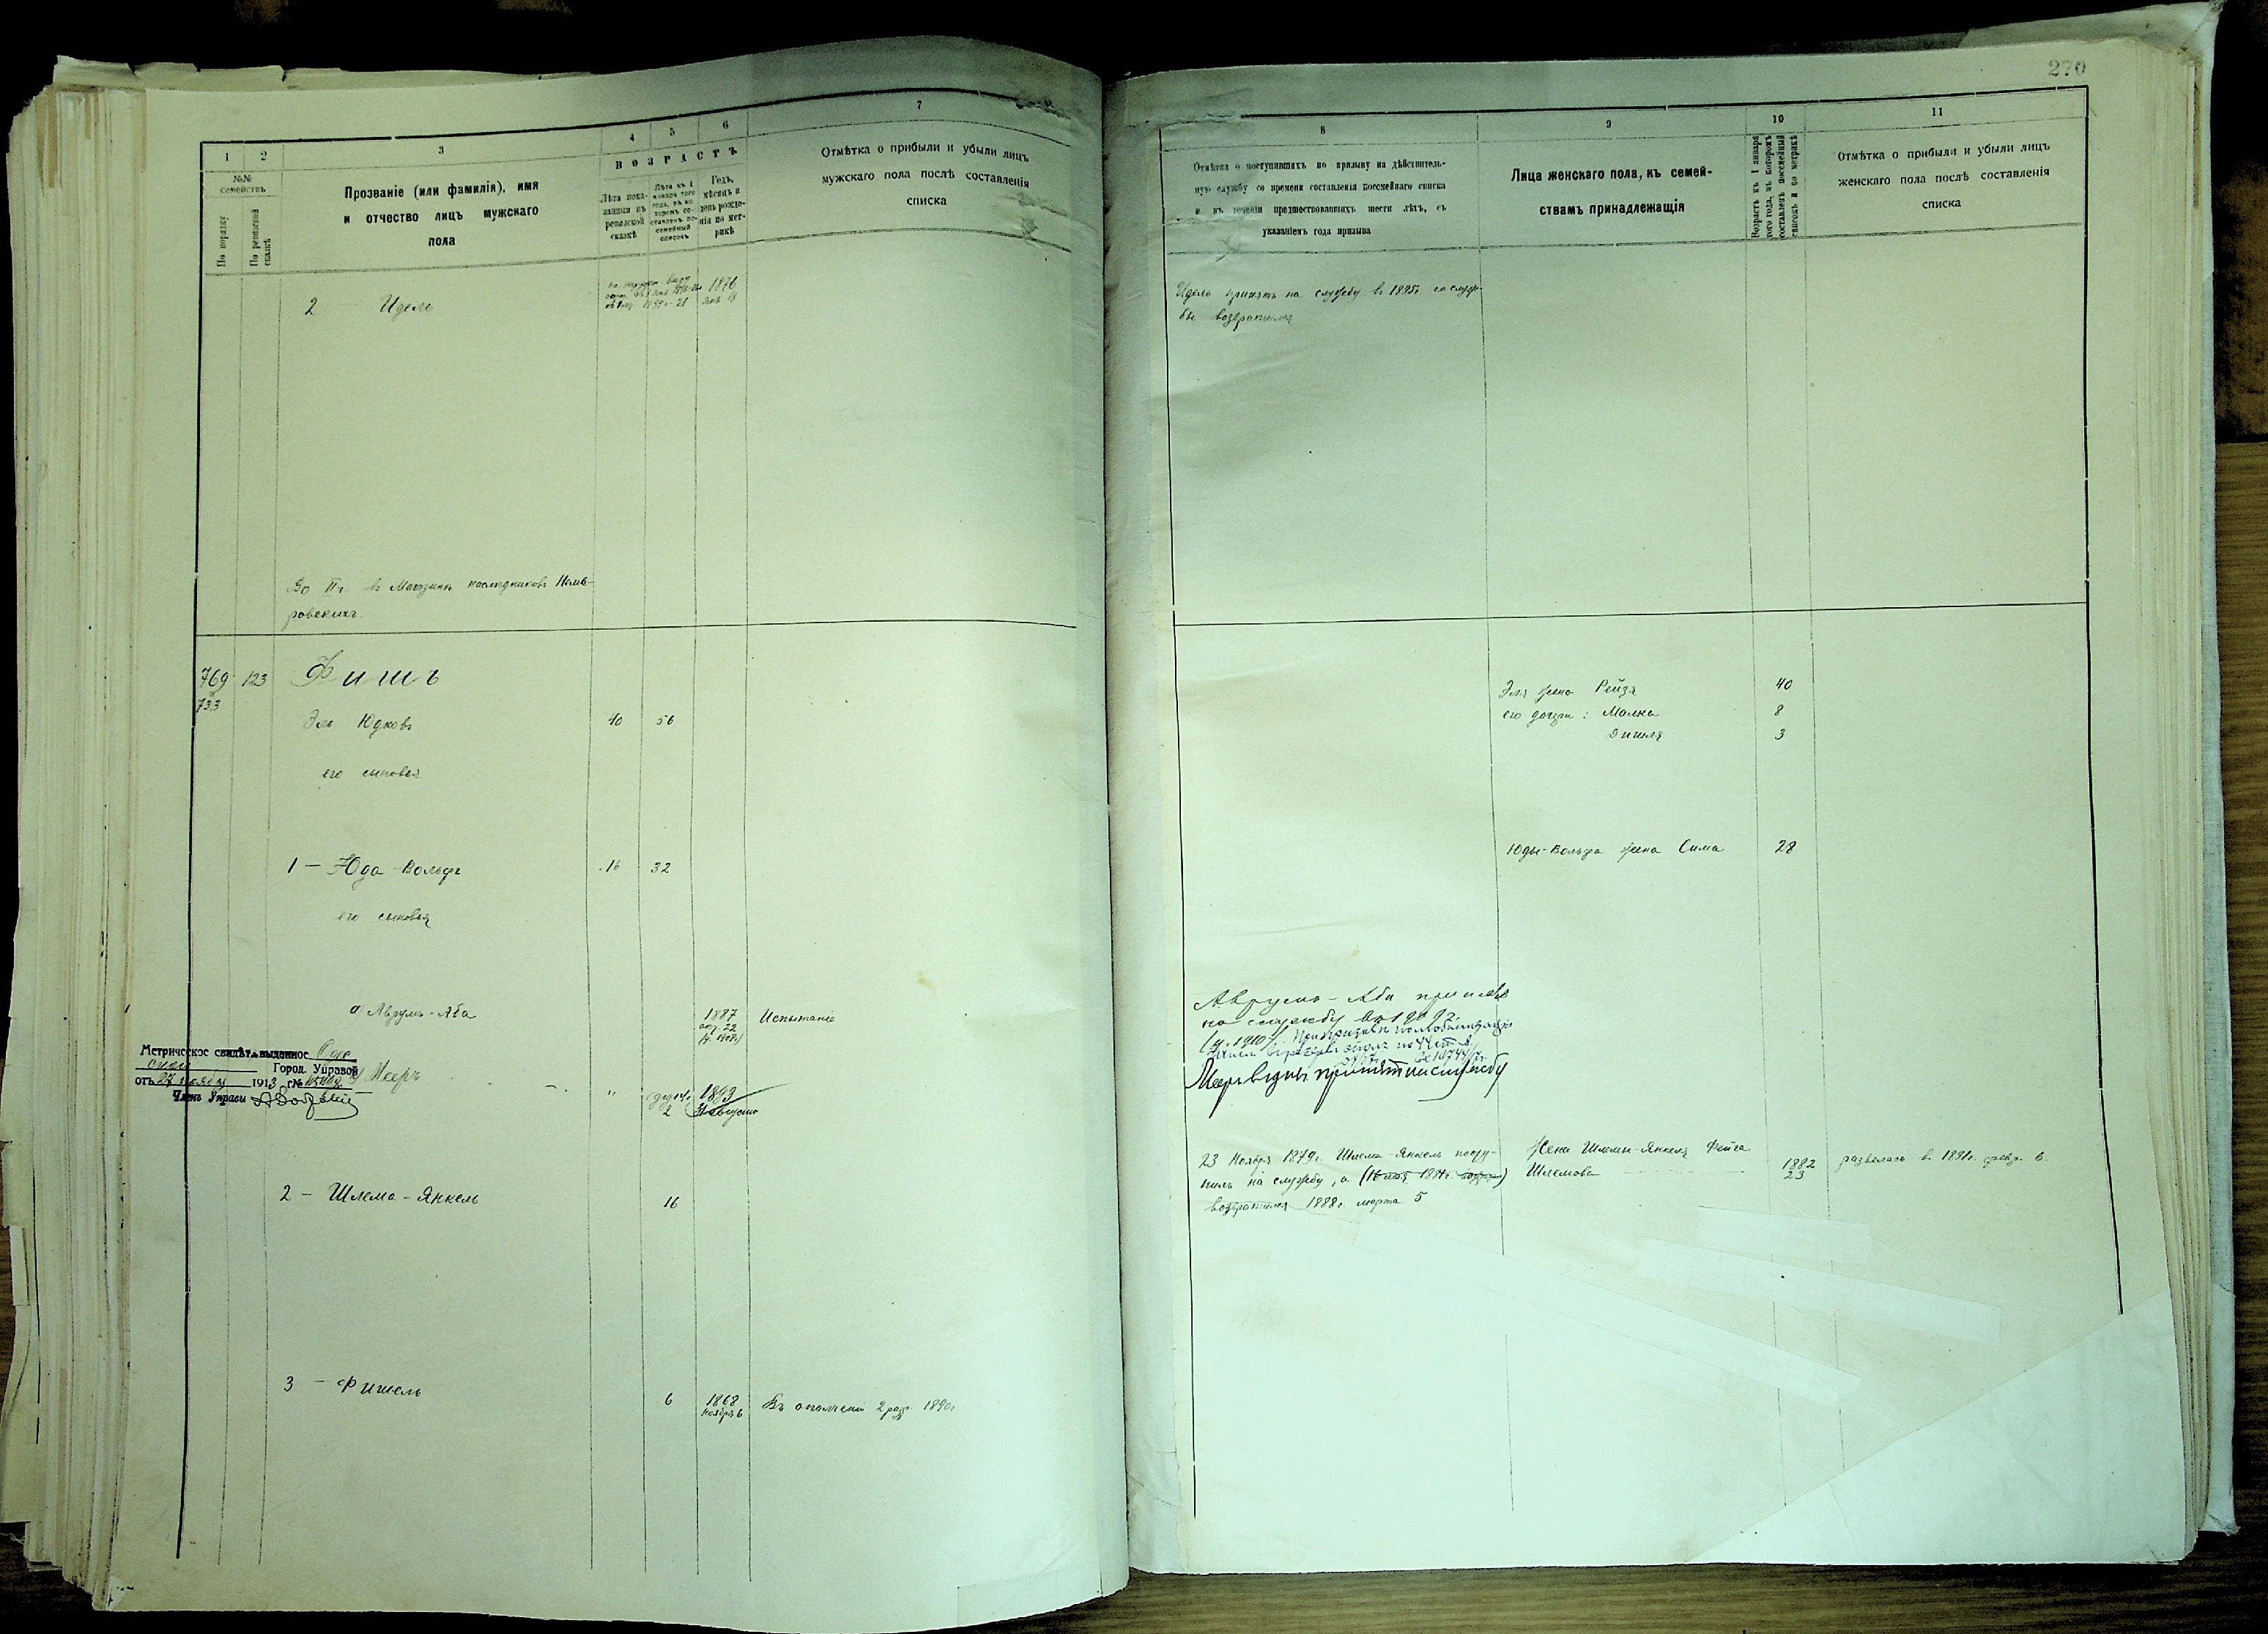 270
1
2
3
4
5
6
7
№№
семействъ
По порядку
По ревизской сказкѣ
Прозваніе (или фамилія), имя
и отчество лицъ мужскаго
пола
ВОЗРАСТЪ
Лѣта пока-
занныя въ
ревизской
сказкѣ
Лѣта къ 1
января того
года, въ ко-
торомъ со-
ставленъ по-
семейный
списокъ
Годъ,
мѣсяцъ и
день рожде-
нія по мет-
рикѣ
Отмѣтка о прибыли и убыли лицъ
мужскаго пола послѣ составленія
списка
2 Идель
1876
янв 18
въ Магазинъ наслѣдниковъ Неми-
ровскихъ.
769 123 Фишъ
733
Эль Юдковъ 40 56
его сыновья
1 — Юда-Вольфъ 16 32
его сыновья
а Аврумъ-Аба 1887 Испытаніе
апр. 22
Метрическое свидѣт. выданное
Город. Управой
отъ 27 ноября 1913 г. №
Членъ Управы
Мееръ 1893
2 31 августа
2 — Шлема-Янкель 16
3 — Фишель 6 1868 Въ ополченіи 2 раз. 1890г
Ноября 6
8
9
10
11
Отмѣтка о поступившихъ по призыву на дѣйствитель-
ную службу со времени составленія посемейнаго списка
и въ теченіи предшествовавшихъ шести лѣтъ, съ
указаніемъ года призыва
Лица женскаго пола, къ семей-
ствамъ принадлежащія
Возрастъ къ 1 января
того года, въ которомъ
составленъ посемейный
списокъ и по метрикѣ
Отмѣтка о прибыли и убыли лицъ
женскаго пола послѣ составленія
списка
Идель принятъ на службу въ 1895г со служ-
бы возвратился
Эля жена Рейзя 40
его дочери: Малка 8
3
Юды-Вольфа жена Сима 28
Аврумъ-Аба принятъ
на службу въ 1909г.
Мееръ принятъ на службу
23 Ноября 1879г. Шлема-Янкель посту-
пилъ на службу, а
возвратился 1888г. марта 5
Жена Шлемы-Янкеля Фейга
Шлемова 1882
23
развелась въ 1891г.